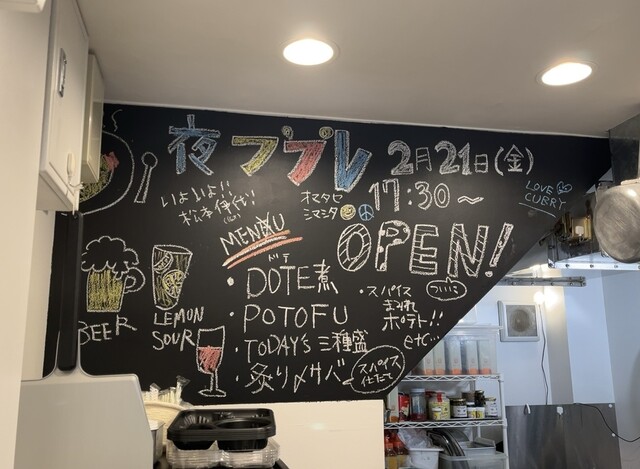 夜ププレ 2月21日(金)
17:30〜
いよいよ!!
オマタセ
シマシタ
LOVE
CURRY
MENU
OPEN!
ついに
ドテ
・DOTE煮
・POTOFU
・TODAY'S 三種盛
・炙り〆サバ
スパイス
仕立て
・スパイス
まみれ
ポテト!!
etc...
BEER
LEMON
SOUR